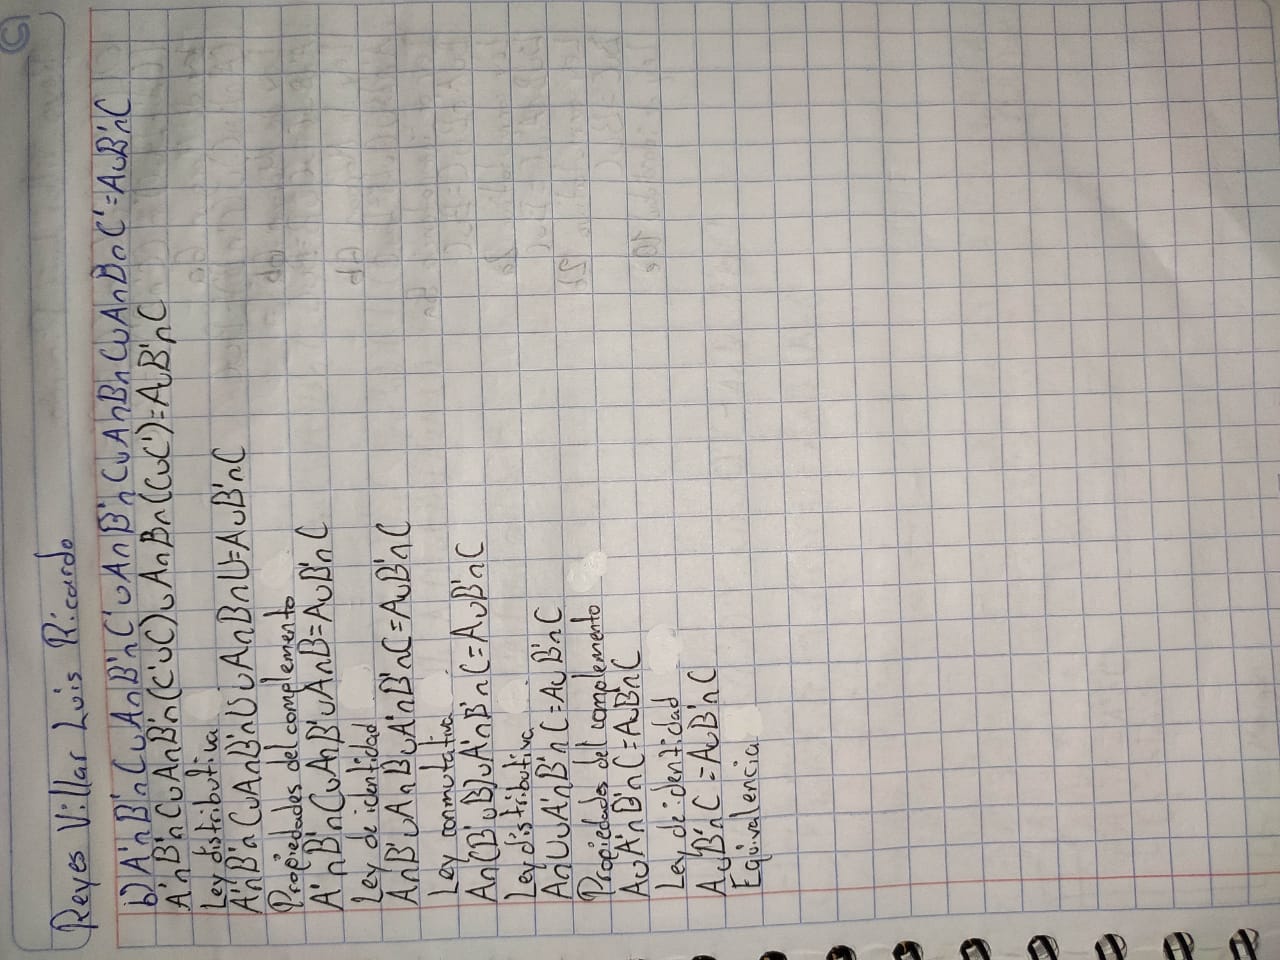 C
Reyes Villar Luis Ricardo
b) A'∩B'∩C∪A∩B'∩C'∪A∩B'∩C∪A∩B∩C∪A∩B∩C'=A∪B'∩C
A'∩B'∩C∪A∩B'∩(C'∪C)∪A∩B∩(C∪C')=A∪B'∩C
Ley distributiva
A'∩B'∩C∪A∩B'∩U∪A∩B∩U=A∪B'∩C
Propiedades del complemento
A'∩B'∩C∪A∩B'∪A∩B=A∪B'∩C
Ley de identidad
A∩B'∪A∩B∪A'∩B'∩C=A∪B'∩C
Ley conmutativa
A∩(B'∪B)∪A'∩B'∩C=A∪B'∩C
Ley distributiva
A∩U∪A'∩B'∩C=A∪B'∩C
Propiedades del complemento
A∪A'∩B'∩C=A∪B'∩C
Ley de identidad
A∪B'∩C=A∪B'∩C
Equivalencia